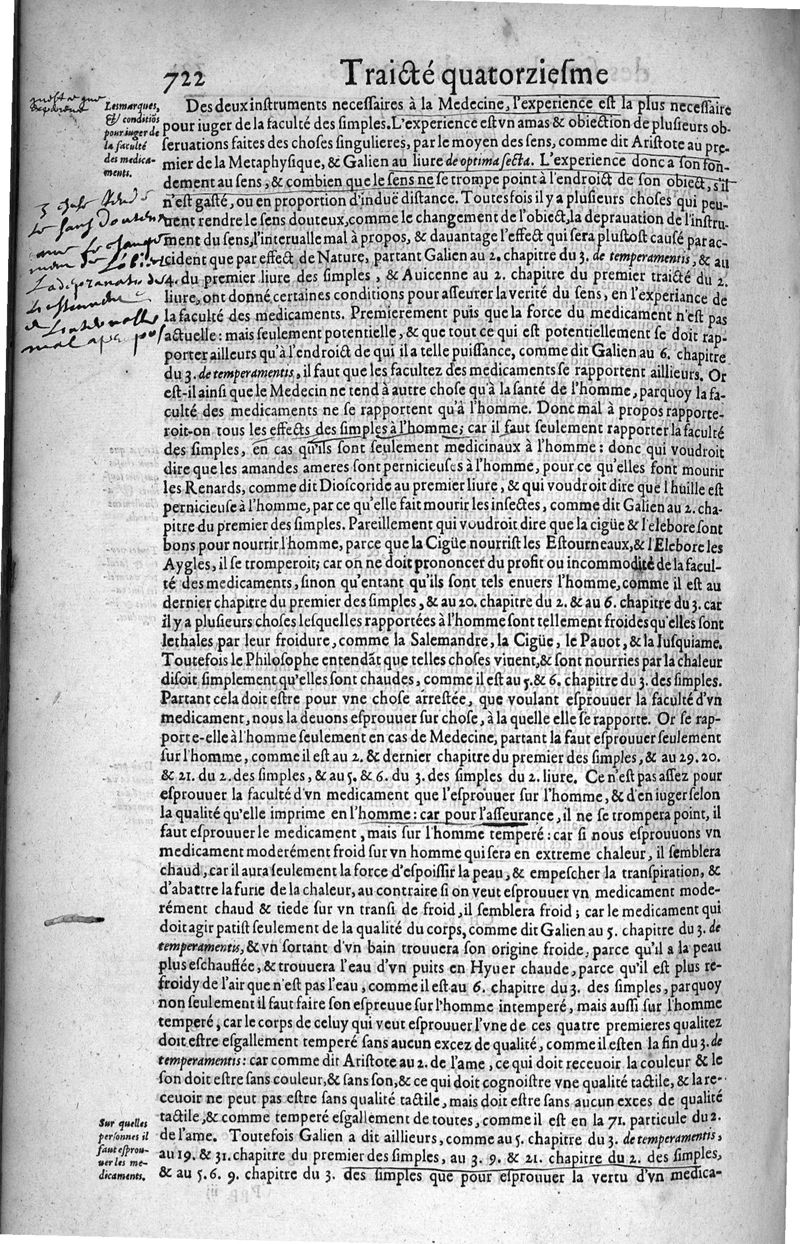 722 Traicté quatorziesme
Les marques,
& conditiõs
pour iuger de
la faculté
des medica-
ments.
Des deux instruments necessaires à la Medecine, l'experience est la plus necessaire
pour iuger de la faculté des simples. L'experience est vn amas & obiection de plusieurs ob-
seruations faites des choses singulieres, par le moyen des sens, comme dit Aristote au pre-
mier de la Metaphysique, & Galien au liure de optima secta. L'experience donc a son fon-
dement au sens, & combien que le sens ne se trompe point à l'endroict de son obiect, s'il
n'est gasté, ou en proportion d'induë distance. Toutesfois il y a plusieurs choses qui peu-
uent rendre le sens douteux, comme le changement de l'obiect, la deprauation de l'instru-
ment du sens, l'interualle mal à propos, & dauantage l'effect qui sera plustost causé par ac-
cident que par effect de Nature, partant Galien au 2. chapitre du 3. de temperamentis, & au
4. du premier liure des simples, & Auicenne au 2. chapitre du premier traicté du 2.
liure, ont donné certaines conditions pour asseurer la verité du sens, en l'experiance de
la faculté des medicaments. Premierement puis que la force du medicament n'est pas
actuelle: mais seulement potentielle, & que tout ce qui est potentiellement se doit rap-
porter ailleurs qu'à l'endroict de qui il a telle puissance, comme dit Galien au 6. chapitre
du 3. de temperamentis, il faut que les facultez des medicaments se rapportent aillieurs. Or
est-il ainsi que le Medecin ne tend à autre chose qu'à la santé de l'homme, parquoy la fa-
culté des medicaments ne se rapportent qu'à l'homme. Donc mal à propos rapporte-
roit-on tous les effects des simples à l'homme; car il faut seulement rapporter la faculté
des simples, en cas qu'ils sont seulement medicinaux à l'homme: donc qui voudroit
dire que les amandes ameres sont pernicieuses à l'homme, pour ce qu'elles font mourir
les Renards, comme dit Dioscoride au premier liure, & qui voudroit dire que l'huille est
pernicieuse à l'homme, par ce qu'elle fait mourir les insectes, comme dit Galien au 2. cha-
pitre du premier des simples. Pareillement qui voudroit dire que la cigüe & l'elebore sont
bons pour nourrir l'homme, parce que la Cigüe nourrist les Estourneaux, & l'Elebore les
Aygles, il se tromperoit; car on ne doit prononcer du profit ou incommodité de la facul-
té des medicaments, sinon qu'entant qu'ils sont tels enuers l'homme, comme il est au
dernier chapitre du premier des simples, & au 20. chapitre du 2. & au 6. chapitre du 3. car
il y a plusieurs choses lesquelles rapportées à l'homme sont tellement froides qu'elles sont
lethales par leur froidure, comme la Salemandre, la Cigüe, le Pauot, & la Iusquiame.
Toutefois le Philosophe entendãt que telles choses viuent, & sont nourries par la chaleur
disoit simplement qu'elles sont chaudes, comme il est au 5. & 6. chapitre du 3. des simples.
Partant cela doit estre pour vne chose arrestée, que voulant esprouuer la faculté d'vn
medicament, nous la deuons esprouuer sur chose, à la quelle elle se rapporte. Or se rap-
porte-elle à l'homme seulement en cas de Medecine, partant la faut esprouuer seulement
sur l'homme, comme il est au 2. & dernier chapitre du premier des simples, & au 29. 20.
& 21. du 2. des simples, & au 5. & 6. du 3. des simples du 2. liure. Ce n'est pas assez pour
esprouuer la faculté d'vn medicament que l'esprouuer sur l'homme, & d'en iuger selon
la qualité qu'elle imprime en l'homme: car pour l'asseurance, il ne se trompera point, il
faut esprouuer le medicament, mais sur l'homme temperé: car si nous esprouuons vn
medicament moderément froid sur vn homme qui sera en extreme chaleur, il semblera
chaud, car il aura seulement la force d'espoissir la peau, & empescher la transpiration, &
d'abattre la furie de la chaleur, au contraire si on veut esprouuer vn medicament mode-
rément chaud & tiede sur vn transi de froid, il semblera froid; car le medicament qui
doit agir patist seulement de la qualité du corps, comme dit Galien au 5. chapitre du 3. de
temperamentis, & vn sortant d'vn bain trouuera son origine froide, parce qu'il a la peau
plus eschauffée, & trouuera l'eau d'vn puits en Hyuer chaude, parce qu'il est plus re-
froidy de l'air que n'est pas l'eau, comme il est au 6. chapitre du 3. des simples, parquoy
non seulement il faut faire son espreuue sur l'homme intemperé, mais aussi sur l'homme
temperé, car le corps de celuy qui veut esprouuer l'vne de ces quatre premieres qualitez
doit estre esgallement temperé sans aucun excez de qualité, comme il est en la fin du 3. de
temperamentis: car comme dit Aristote au 2. de l'ame, ce qui doit receuoir la couleur & le
son doit estre sans couleur, & sans son, & ce qui doit cognoistre vne qualité tactile, & la re-
ceuoir ne peut pas estre sans qualité tactile, mais doit estre sans aucun exces de qualité
tactile, & comme temperé esgallement de toutes, comme il est en la 71. particule du 2.
de l'ame. Toutefois Galien a dit aillieurs, comme au 5. chapitre du 3. de temperamentis,
au 19. & 31. chapitre du premier des simples, au 3. 9. & 21. chapitre du 2. des simples,
& au 5. 6. 9. chapitre du 3. des simples que pour esprouuer la vertu d'vn medica-
Sur quelles
personnes il
faut esprou-
uer les me-
dicaments.